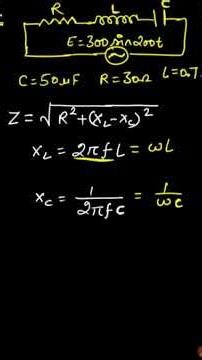 R L C
E=300 sin200t
C=50μF R=30Ω L=0.7
Z=√R²+(X_L-X_C)²
X_L = 2πfL = ωL
X_C = 1/2πfC = 1/ωC